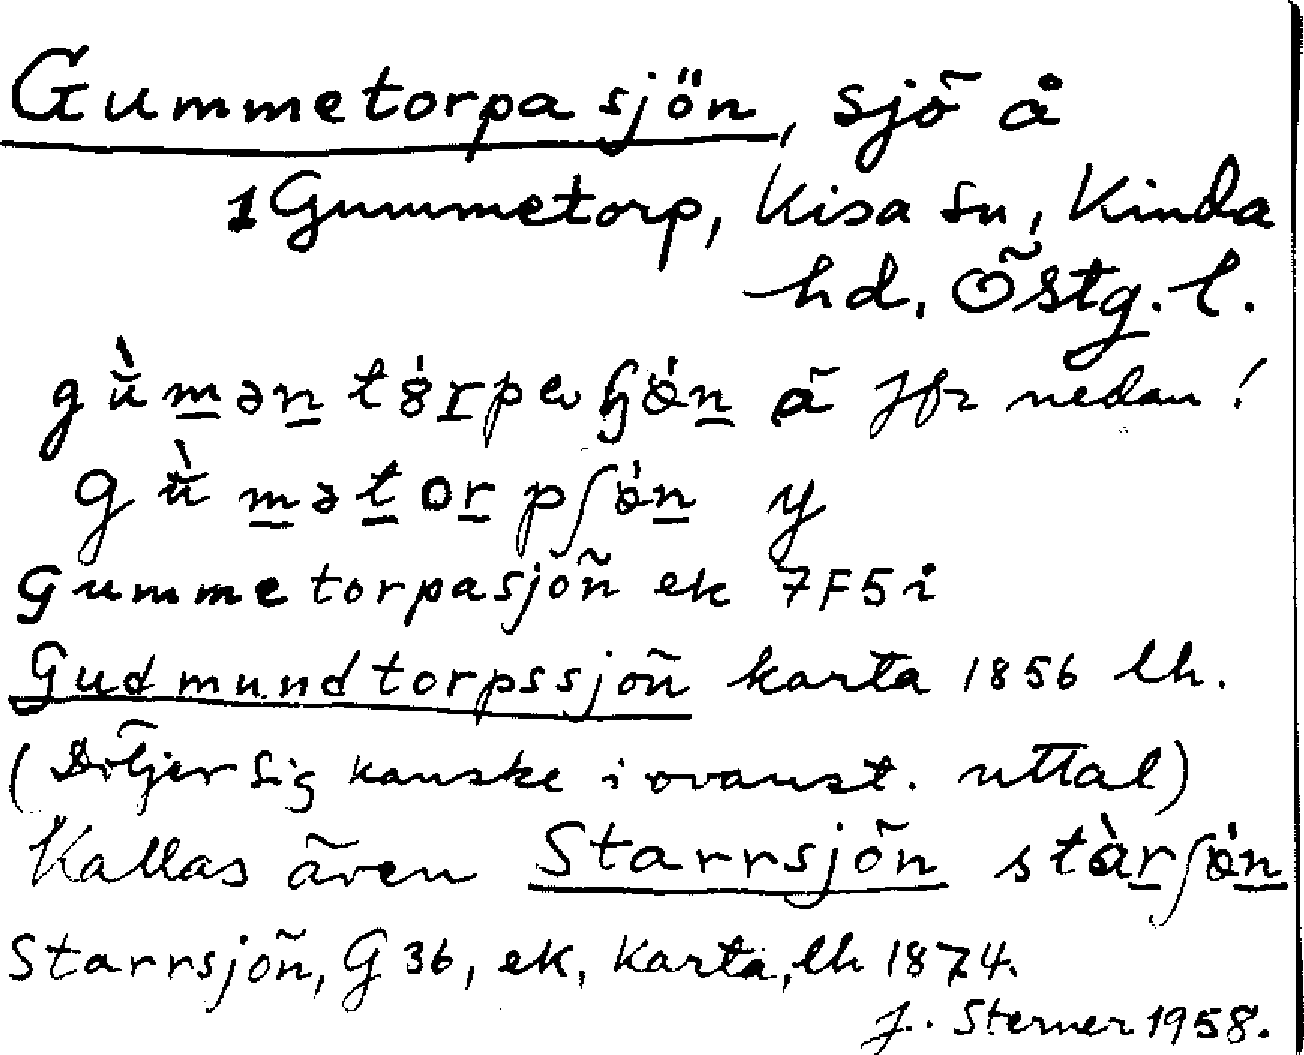 Gummetorpasjön, sjö å
1 Gummetorp, Kisa sn, Kinda
hd, Östg. l.
ä Jfr nedan!
y
Gummetorpasjön ek 7F5i
Gudmundtorpssjön karta 1856 lh.
(Döljer sig kanske i ovanst. uttal)
Kallas även Starrsjön
Starrsjön, G 36, ek, karta, lh 1874.
J. Sterner 1958.